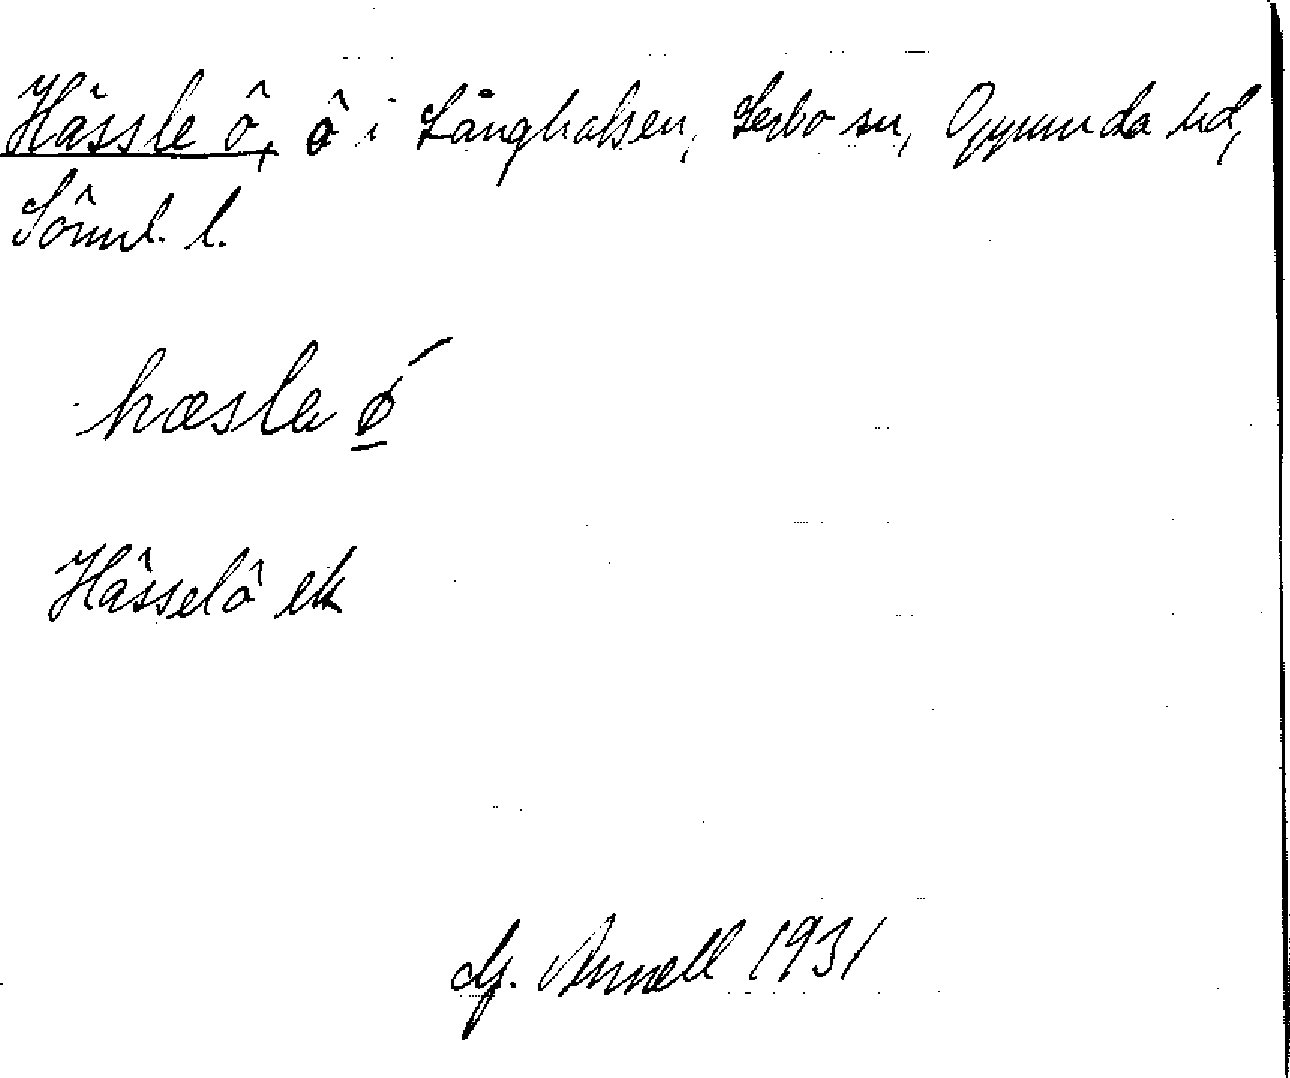 Hässle ö, ö i Långhalsen, Lerbo sn, Oppunda hd,
Söml. l.
hæsla ǿ
Hässelö ek
Hj. Annell 1931